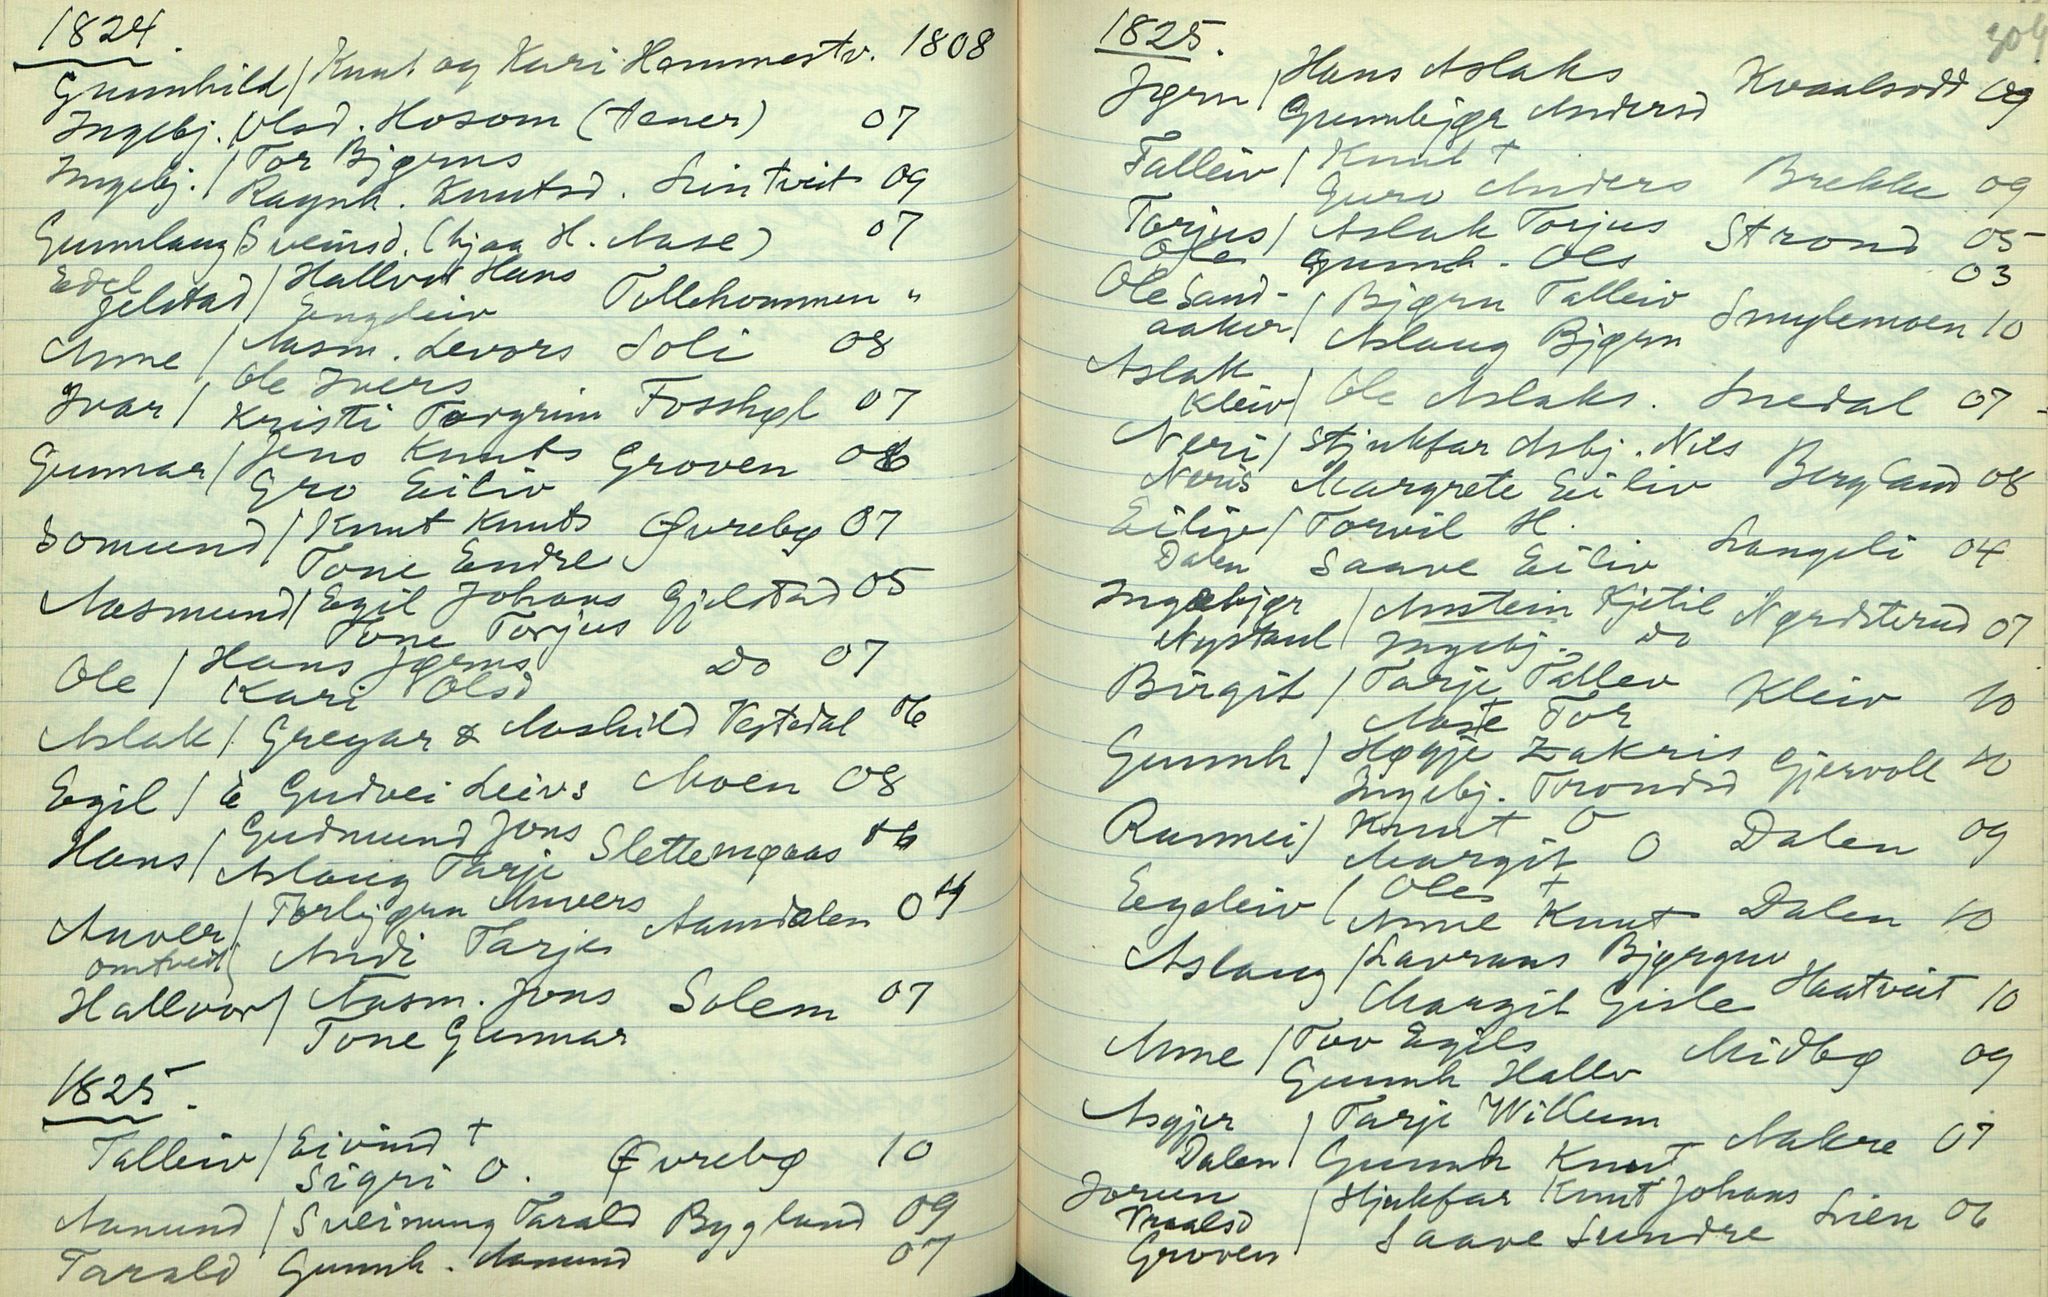 1824.
Gunnhild / Knut og Kari Hommestv. 1808
Ingebj. Olsd. Hosom (tener) 07
Ingebj. / Tor Bjørns
Ragnh. Knutsd. Lintveit 09
Gunnlaug Sveinsd. (hjaa H. Aase) 07
Edel
jelstad / Hallvor Hans
Engeleiv Tillehommen "
Anne / Aasm. Levors Soli 08
Ivar / Ole Ivers
Kristi Torgrim Fosshøl 07
Gunnar / Jens Knuts Groven 06
Gro Eiliv
Somund / Knut Knuts Øvrebø 07
Tone Endre
Aasmund / Egil Johans Gjelstad 05
Tone Torjus
Ole / Hans Jørns Do 07
Kari Olsd
Aslak / Gregar & Aashild Vestdal 06
Egil / E Gudvei Leivs Moen 08
Hans / Gudmund Jons Slettemoaas 06
Aslaug Tarje
Anver / Torbjørn Anvers Aamdalen 04
omtveit Andi Tarje
Hallvor / Aasm. Jons Solem 07
Tone Gunnar
1825.
Talleiv / Eivind †
Sigri O. Øvrebø 10
Aamund / Sveinung Tarald Bygland 09
Tarald Gunnh. Aamund 07
1825. 304
Jørn / Hans Aslaks Kvaalsodd 09
Gunnbjør Andersd
Talleiv / Knut †
Guro Anders Brekke 09
Torjus / Aslak Torjus Strond 05
Ole Gunnh. Ols 03
Ole Sand-
aaker / Bjørn Talleiv Smylemoen 10
Aslaug Bjørn
Aslak
Kleiv / Ole Aslaks. Snedal 07
Neri / Stjukfar Asbj. Nils
Neris Margrete Eiliv Bergland 08
Eiliv / Torvil H.
Dalen Saave Eiliv Langeli 04
Ingebjør / Anstein Kjetil Nørdsterud 07
Nystaul Ingebj. Do
Birgit / Tarje Tallev Kleiv 10
Aaste Tor
Gunnh / Høgje Zakris Gjervoll 10
Ingebj. Trondsd
Runnei / Knut O
Margit O Dalen 09
Egeleiv / Oles †
Anne Knut Dalen 10
Aslaug / Lavrans Bjørguv
Margit Gisle Haatveit 10
Anne / Tov Egils Midbø 09
Gunnh Hallv
Asgjer / Tarje Willum
Dalen Gunnh Knut Aakre 07
Jorun / Stjukfar Knut Johans
Vraalsd Saave Sundre Lien 06
Groven